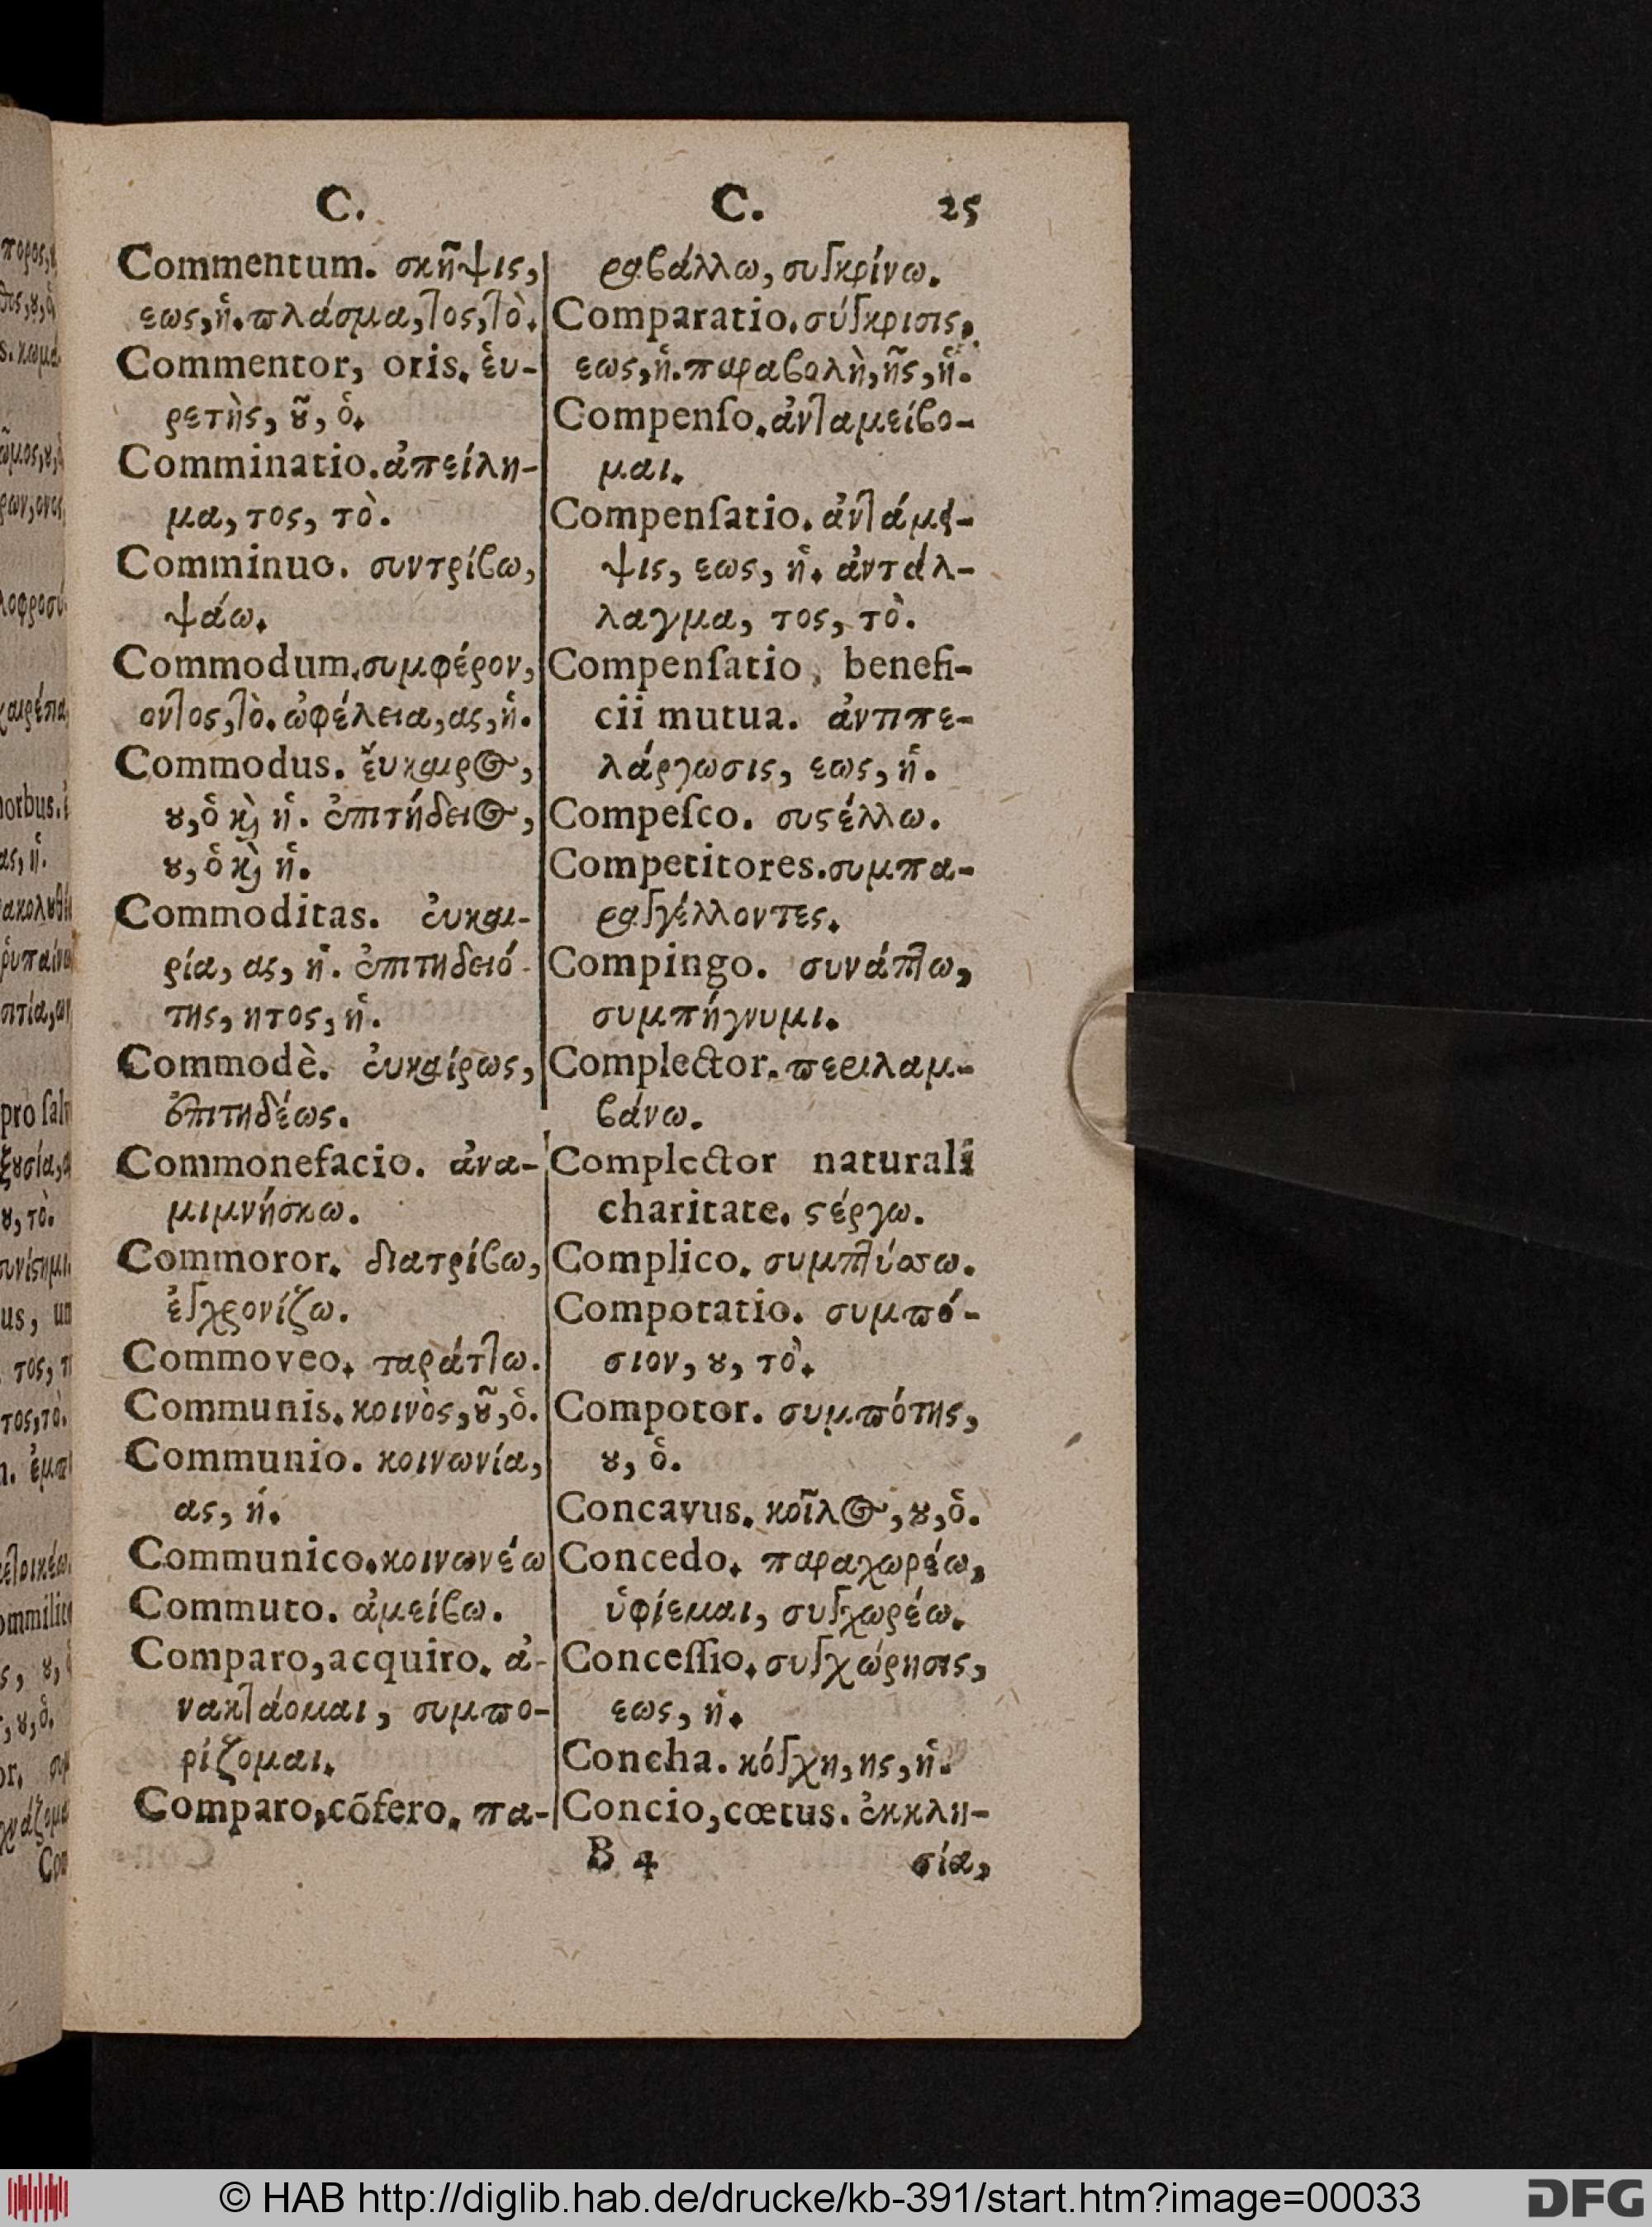 C.
Commentum. σκῆψις,
εως, ἡ. πλάσμα, τος, τὸ.
Commentor, oris. ἑυ-
ρετὴς, ȣ͂, ὁ.
Comminatio. ἀπείλη-
μα, τος, τὸ.
Comminuo. συντρίϐω,
ψάω.
Commodum. συμφέρον,
οντος, τὸ. ὠφέλεια, ας, ἡ.
Commodus. ἔυκαιρος,
ȣ, ὁ κ̀ ἡ. ἐπιτήδειος,
ȣ, ὁ κ̀ ἡ.
Commoditas. ἐυκαι-
ρία, ας, ἡ. ἐπιτηδειό-
της, ητος, ἡ.
Commodè. ἐυκαίρως,
ἐπιτηδέως.
Commonefacio. ἀνα-
μιμνήσκω.
Commoror. διατρίϐω,
ἐγχρονίζω.
Commoveo. ταράττω.
Communis. κοινὸς, ȣ͂, ὁ.
Communio. κοινωνία,
ας, ἡ.
Communico. κοινωνέω
Commuto. ἀμείϐω.
Comparo, acquiro. ἀ-
νακτάομαι, συμπο-
ρίζομαι.
Comparo, cōfero. πα-
C. 25
ραϐάλλω, συγκρίνω.
Comparatio. σύγκρισις,
εως, ἡ. παραϐολὴ, ῆς, ἡ.
Compenſo. ἀνταμείϐο-
μαι.
Compenſatio. ἀντάμει-
ψις, εως, ἡ. ἀντάλ-
λαγμα, τος, τὸ.
Compenſatio, benefi-
cii mutua. ἀντιπε-
λάργωσις, εως, ἡ.
Compeſco. συϛέλλω.
Competitores. συμπα-
ραγγέλλοντες.
Compingo. συνάπτω,
συμπήγνυμι.
Complector. περιλαμ-
ϐάνω.
Complector naturali
charitate. ϛέργω.
Complico. συμπτύσσω.
Compotatio. συμπό-
σιον, ȣ, τὸ.
Compotor. συμπότης,
ȣ, ὁ.
Concavus. κοῖλος, ȣ, ὁ.
Concedo. παραχωρέω,
ὑφίεμαι, συγχωρέω.
Conceſſio. συγχώρησις,
εως, ἡ.
Concha. κόγχη, ης, ἡ.
Concio, cœtus. ἐκκλη-
B 4 σία,
© HAB http://diglib.hab.de/drucke/kb-391/start.htm?image=00033
DFG